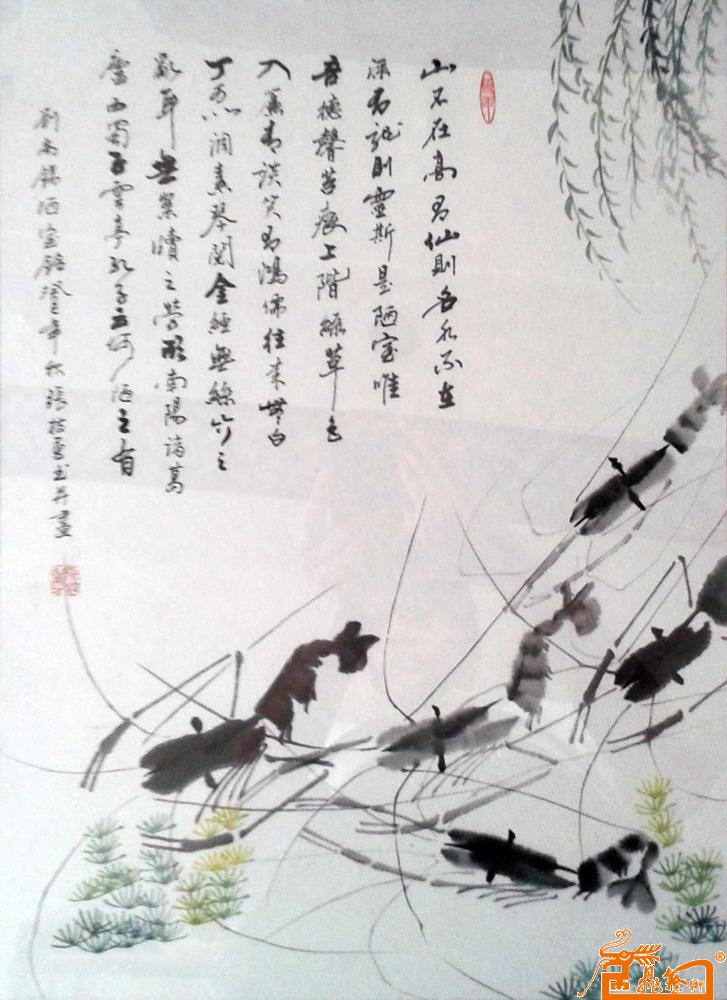 山不在高有仙則名水不在
深有龍則靈斯是陋室唯
吾德馨苔痕上階綠草色
入簾青談笑有鴻儒往来無白
丁可以調素琴閱金經無絲竹之
亂耳無案牘之勞形南陽諸葛
廬西蜀子雲亭孔子云何陋之有
劉禹錫陋室銘癸巳年秋張書并畫